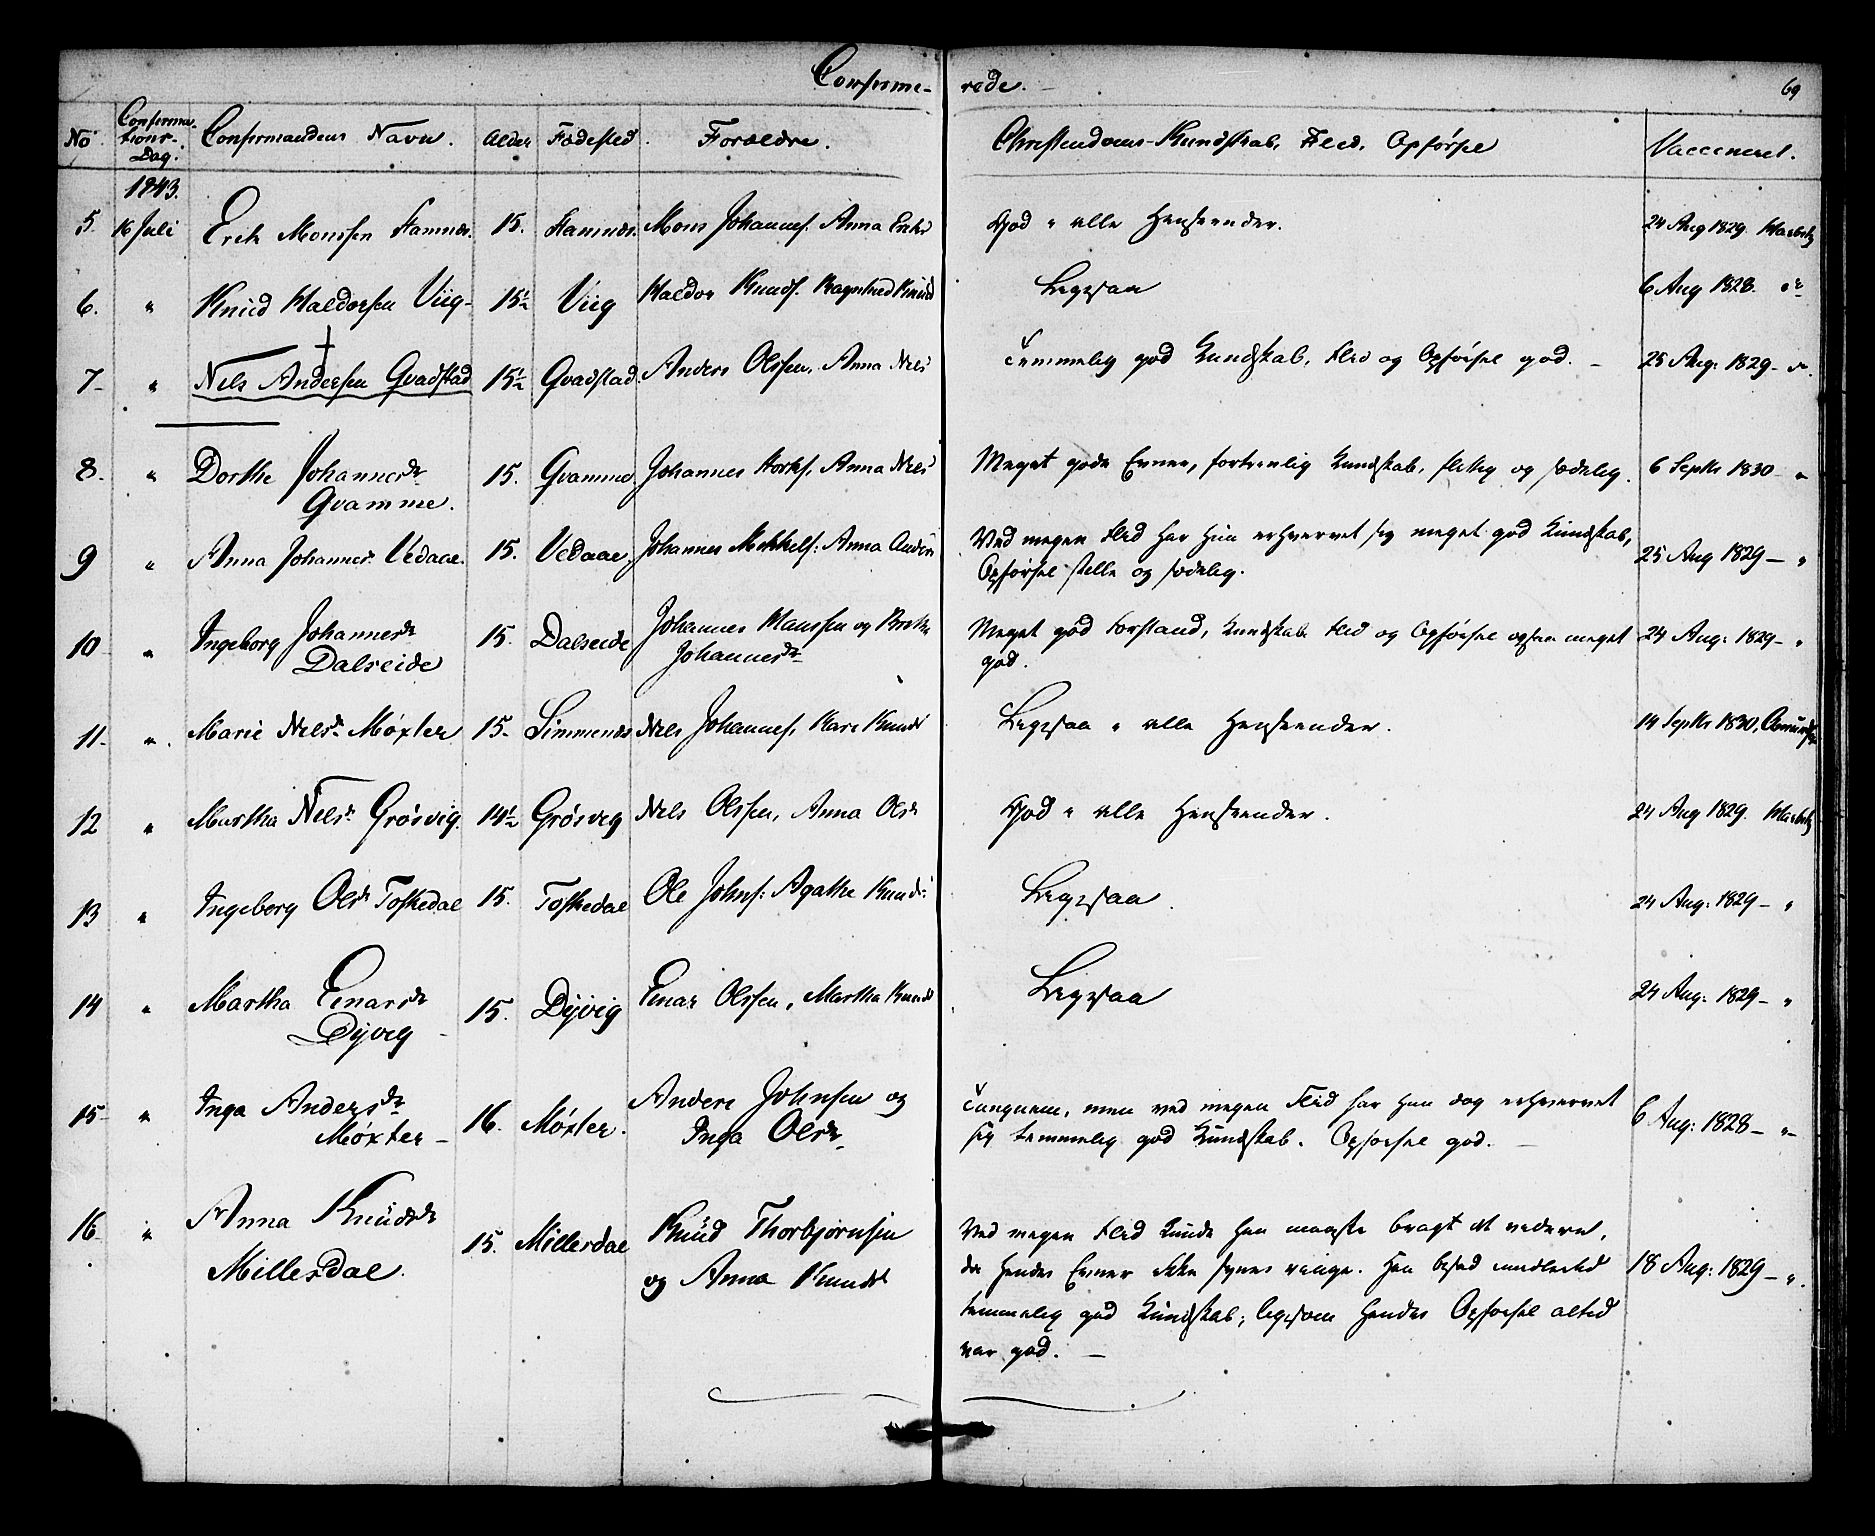 Confirme- rede. 69
No Confirma-
tions-
Dag. Confirmandens Navn. Alder Fødested. Forældre. Christendoms-Kundskab, Flid, Opførsel Vaccineret.
1843.
5. 16 Juli Erik Monssen Stamnes. 15. Stamnes. Mons Johannes. Anna Eriks God i alle Henseender. 24 Aug 1829.
6. " Knud Haldorsen Viig- 15½ Viig Haldor Knuds. Ragnhild Knud Ligesaa 6 Aug 1828.
7- " Nels Andersen Qvadstad 15½ Qvadstad. Anders Olssen, Anna Nels Temmelig god Kundskab, Flid og Opførsel god. - 25 Aug: 1829-
8. " Dorthe Johannesdr
Qvamme. 15. Qvamme. Johannes Anna Nels Meget gode Evner, fortrinlig Kundskab, flittig og sædelig. 6 Septbr 1830- "
9 " Anna Johannesdr Vedaae. 15. Vedaae. Johannes Mikkels: Anna Anders Ved megen Flid har hun erhvervet sig meget god Kundskab,
Opførsel stille og sædelig. 25 Aug 1829- "
10 " Ingeborg Johannesdr
Dalseide 15. Dalseide Johannes Hanssen og Brithe
Johannesdr Meget god Forstand, Kundskab Flid og Opførsel ogsaa meget
god. 24 Aug: 1829- "
11- ". Marie Nelsdr Møxter 15- Simmenæs Nels Johannes, Kari Knuds Ligesaa i alle Henseender. 14 Septbr 1830,
12 " Martha Nelsdr Grøsvig. 14½ Grøsvig Nels Olssen, Anna Olsdr God i alle Henseender. 24 Aug 1829.
13 " Ingeborg Olsdr Toskedal 15. Toskedal Ole Johns: Agathe Knuds: Ligesaa. 24 Aug: 1829- "
14 " Martha Einarsdr
Dyvig - 15. Dyvig Einar Olssen, Martha Knuds Ligesaa 24 Aug: 1829- "
15- " Inga Andersdr
Møxter- 16. Møxter. Anders Johnsen og
Inga Olsdr Tungnem, men ved megen Flid har hun dog erhvervet
sig temmelig god Kundskab. Opførsel god. - 6 Aug: 1828- "-
16. " Anna Knudsdr
Millerdal. 15. Millerdal Knud Thorbjørnsen
og Anna Knuds Ved megen Flid kunde hun maaske bragt det videre,
da hendes Evner ikke synes ringe. Hun besad imidlertid
temmelig god Kundskab; ligesom hendes Opførsel altid
var god. - 18 Aug: 1829- ".